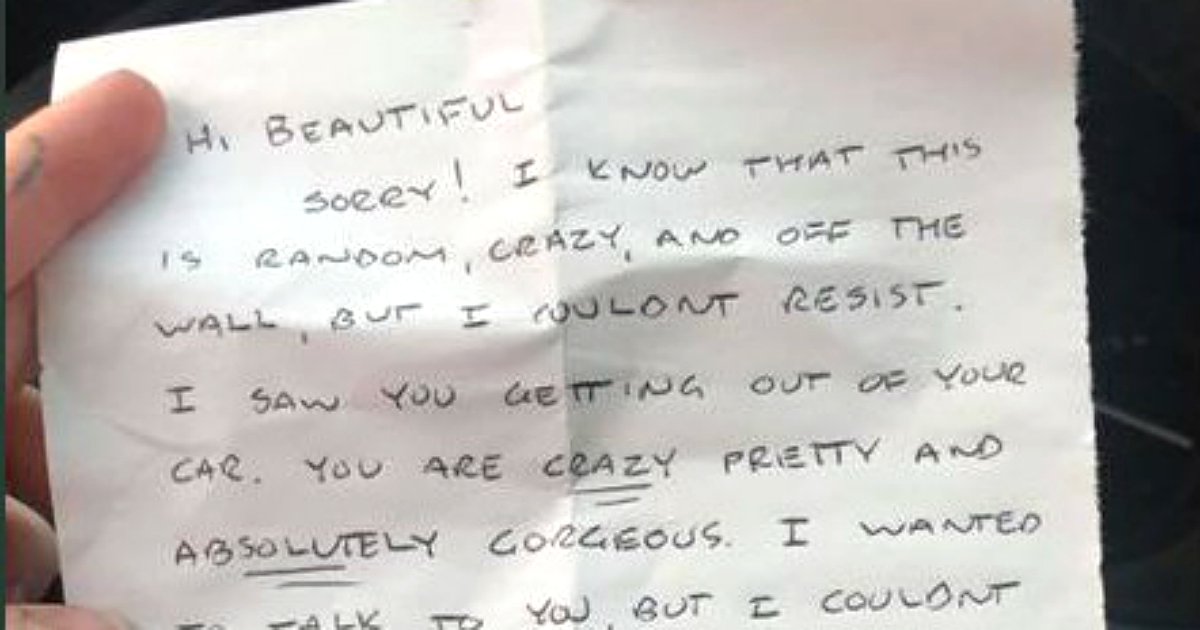 HI BEAUTIFUL
SORRY! I KNOW THAT THIS
IS RANDOM, CRAZY, AND OFF THE
WALL, BUT I COULDNT RESIST.
I SAW YOU GETTING OUT OF YOUR
CAR. YOU ARE CRAZY PRETTY AND
ABSOLUTELY GORGEOUS. I WANTED
TO TALK TO YOU, BUT I COULDNT